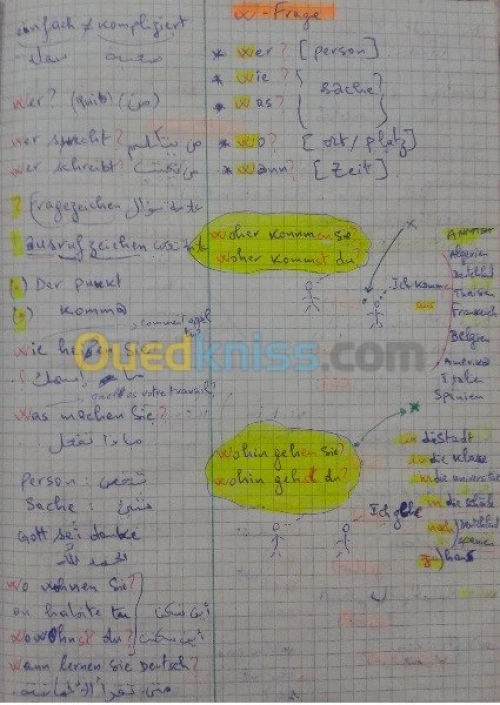 einfach ≠ kompliziert
wer? (qui) (من)
wer spricht? من يتكلم
wer schreibt? من يكتب
? Fragezeichen علامة سؤال
! ausrufzeichen
(.) Der punkt
(,) komma
wie heißen Sie
Was machen Sie?
ماذا تفعل
person : شخص
Sache : شيء
Gott sei danke
الحمد لله
wo wohnen Sie?
ou habite tu أين تسكن
wo wohnst du? أين تسكن
wann lernen Sie Deutsch?
w-Frage
* wer? [person]
* wie?
* was?
sache
* wo? [ort/platz]
* wann? [Zeit]
Woher kommen Sie?
Woher kommst du?
Ich komme
aus
Algerien
Tunisien
Frankreich
Belgien
Amerika
Italien
Spinien
Ouedkniss.com
Wohin gehen Sie?
wohin gehst du?
Ich gehe
in die stadt
in die klasse
in die universität
in die schule
nach
zu haus